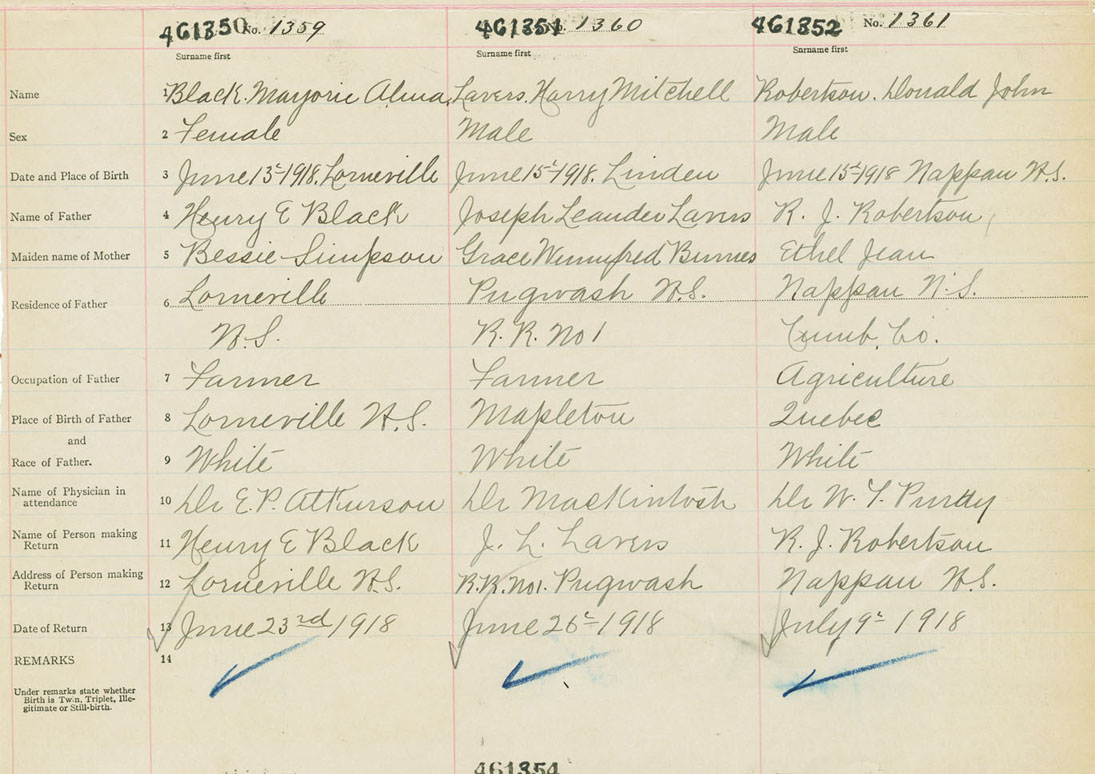 461350 No. 1359 461351 No. 1360 461352 No. 1361
Surname first Surname first Surname first
Name 1 Black. Marjorie Alma Lavers. Harry Mitchell Robertson. Donald John
Sex 2 Female Male Male
Date and Place of Birth 3 June 13th 1918. Lorneville June 15th 1918. Linden June 15th 1918 Nappan N.S.
Name of Father 4 Henry E Black Joseph Leander Lavers R. J. Robertson
Maiden name of Mother 5 Bessie Simpson Grace Wennyfred Ethel Jean
Residence of Father 6 Lorneville Pugwash N.S. Nappan N.S.
N.S. R.R. No 1 Cumb. Co.
Occupation of Father 7 Farmer Farmer Agriculture
Place of Birth of Father 8 Lorneville N.S. Mapleton Quebec
and
Race of Father. 9 White White White
Name of Physician in
attendance 10 Dr E.P. Atkinson Dr Mackintosh Dr W. T. Purdy
Name of Person making
Return 11 Henry E Black J. L. Lavers R. J. Robertson
Address of Person making
Return 12 Lorneville N.S. R.R. No 1. Pugwash Nappan N.S.
Date of Return 13 June 23rd 1918 June 26th 1918 July 9th 1918
REMARKS 14
Under remarks state whether
Birth is Twin, Triplet, Ille-
gitimate or Still-birth.
461354